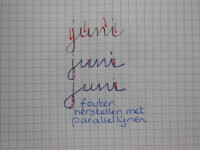 juni
juni
juni
fouten
herstellen met
parallellijnen